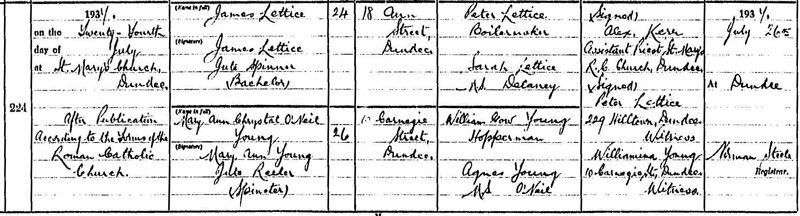 224
1931.
on the Twenty-Fourth
day of July
at St. Mary's Church,
Dundee
After Publication
According to the Forms of the
Roman Catholic
Church.
(Name in full)
James Lettice
(Signature)
James Lettice
Jute Spinner
(Bachelor)
(Name in full)
Mary Ann Chrystal O'Neil
Young
(Signature)
Mary Ann Young
Jute Reeler
(Spinster)
24
26
18 Ann
Street,
Dundee
10 Carnegie
Street,
Dundee.
Peter Lettice
Boilermaker
Sarah Lettice
M.S. Delaney
William Gow Young
Hopperman
Agnes Young
M.S. O'Neil
(Signed)
Alex. Kerr
Assistant Priest, St. Mary's
R.C. Church, Dundee
(Signed)
Peter Lettice
229 Hilltown, Dundee
Witness
Williamina Young
10 Carnegie St., Dundee
Witness.
1931.
July 26th
At Dundee
Norman Steele
Registrar.